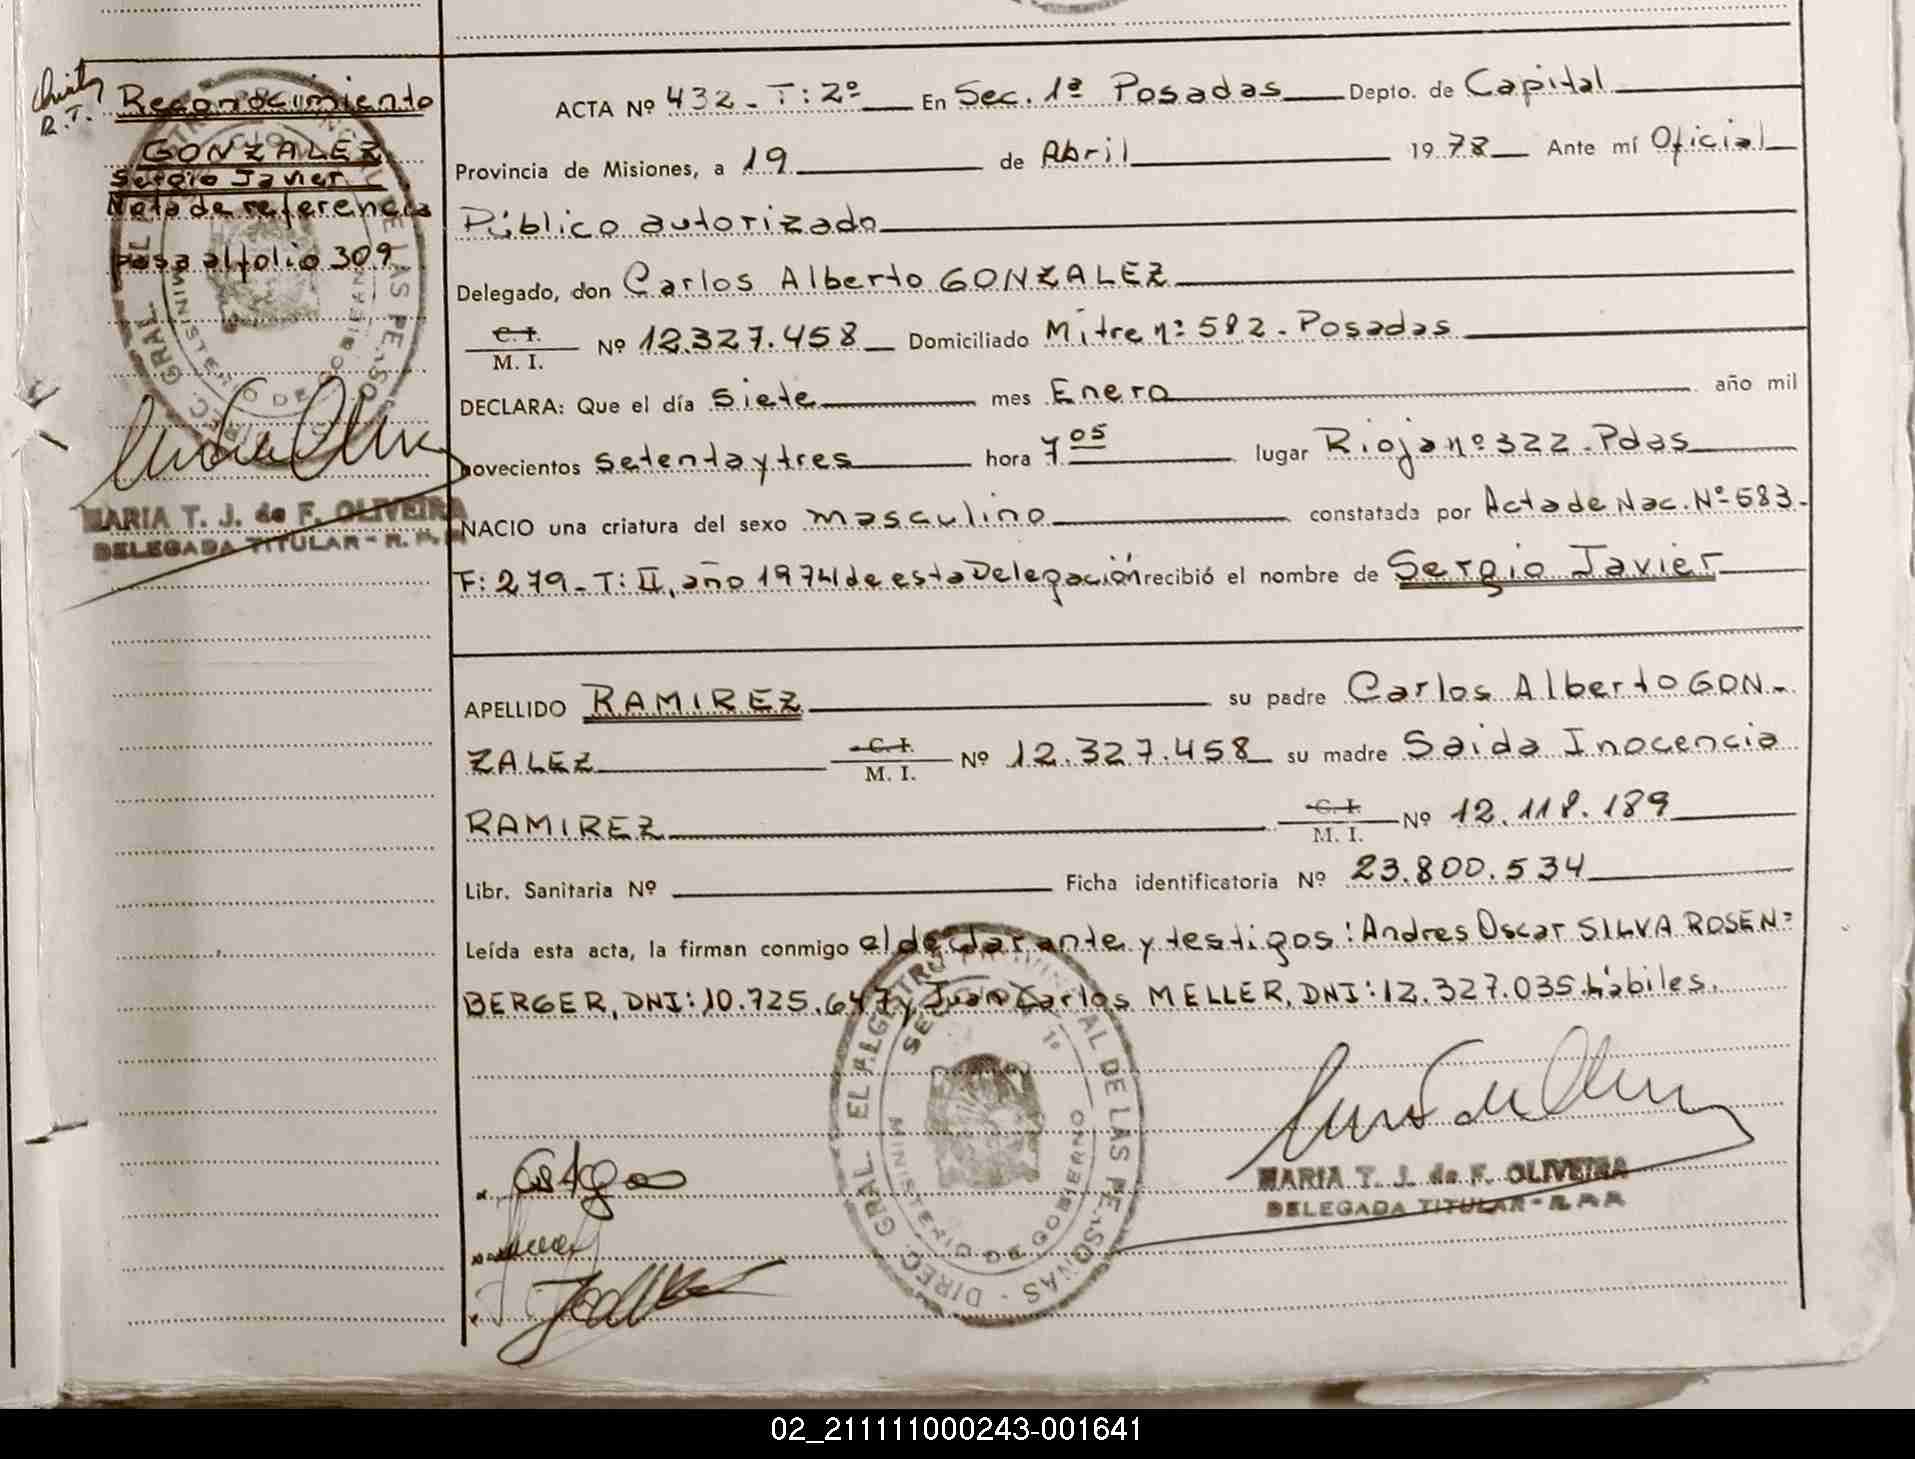 R.T.
Reconocimiento
GONZALEZ
Sergio Javier
Nota de referencia
pasa al folio 309
MARIA T. J. de F. OLIVEIRA
DELEGADA TITULAR - R. P. P.
ACTA Nº 432 - T: 2º En Sec. 1ª Posadas Depto. de Capital
Provincia de Misiones, a 19 de Abril 1978 Ante mí Oficial
Público autorizado
Delegado, don Carlos Alberto GONZALEZ
C. I.
M. I. Nº 12.327.458 Domiciliado Mitre nº 582 - Posadas
DECLARA: Que el día siete mes Enero año mil
novecientos setenta y tres hora 7 05 lugar Rioja nº 322 - Pdas
NACIO una criatura del sexo masculino constatada por Acta de Nac. Nº 583 -
F: 279 - T: II, año 1974 de esta Delegación recibió el nombre de Sergio Javier
APELLIDO RAMIREZ su padre Carlos Alberto GON-
ZALEZ C. I. M. I. Nº 12.327.458 su madre Saida Inocencia
RAMIREZ C. I. M. I. Nº 12.118.189
Libr. Sanitaria Nº Ficha identificatoria Nº 23.800.534
Leída esta acta, la firman conmigo el declarante y testigos: Andres Oscar SILVA ROSEN=
BERGER, DNI: 10.725.647 y Juan Carlos MELLER, DNI: 12.327.035 hábiles.
DIREC. GRAL. EL REGISTRO PROVINCIAL DE LAS PERSONAS
MINISTERIO DE GOBIERNO
MARIA T. J. de F. OLIVEIRA
DELEGADA TITULAR - R. P. P.
02_211111000243-001641